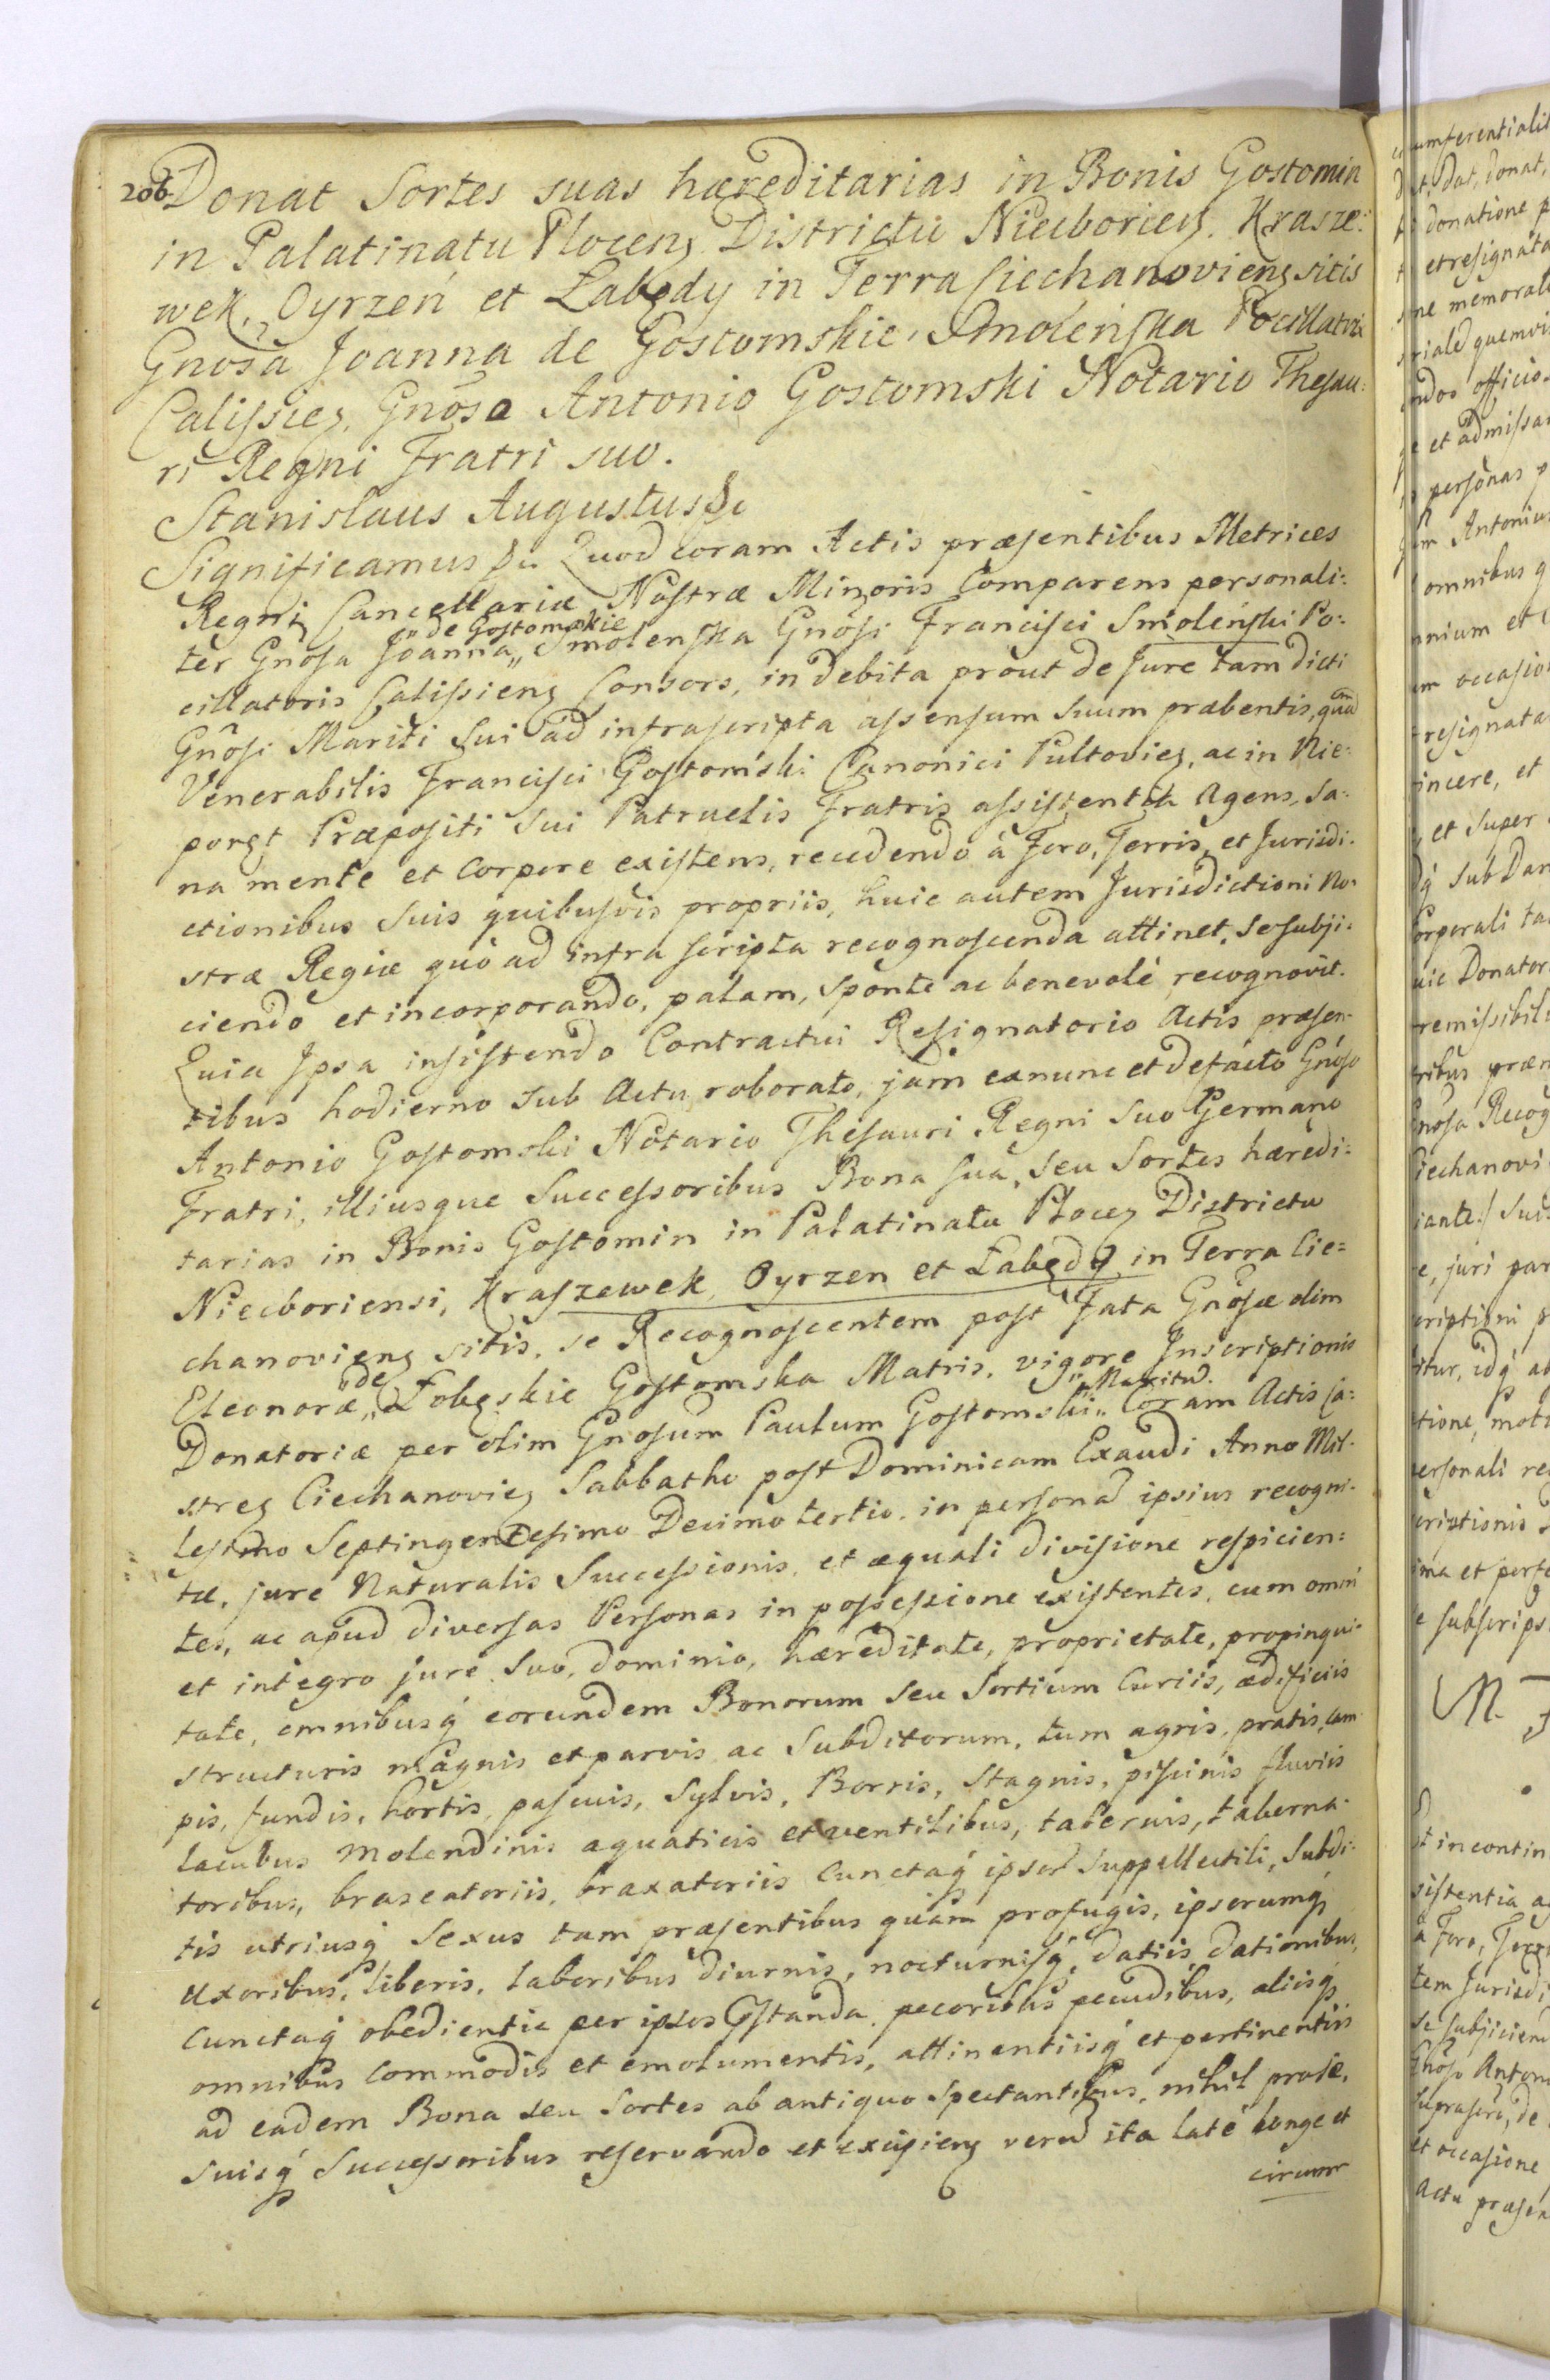 206.
Donat Sortes suas hæreditarias in Bonis Gostomin
in Palatinatu Plocenʒ Districtu Niecboricʒ. Krasze:
wek, Oyrzeń et Łabędy in Terra Ciechanovienʒ sitis
Gnosa Joanna de Gostomskie, Smolenska Pocillatrix
Calissieʒ, Gnoso Antonio Gostomski Notario Thesau:
ri Regni Fratri suo.
Stanislaus Augustus &c
Significamus &c. Quod coram Actis præsentibus Metrices
Regni Cancellariæ Nostræ Minoris Comparens personali:
ter Gnosa Joanna „de Gostomskie„ Smolenska Gnosi Francisci Smoleński Po:
cillatoris Calissienʒ Consors, in debita prout de Jure tam dicti
Gnosi Mariti Sui ad infrascripta assensum suum præbentis, quam
Venerabilis Francisci Gostomski Canonici Pultovieʒ, ac in Nie:
poręt Præpositi Sui Patruelis Fratris assistentia Agens, Sa:
na mente et Corpore existens, recedendo à Foro, Terris, et Jurisdi:
ctionibus Suis quibusvis propriis, huic autem Jurisdictioni No:
stræ Regiæ quò ad infra scripta recognoscenda attinet, Se subji:
ciendo et incorporando, palam, sponte ac benevolè recognovit.
Quia Ipsa insistendo Contractui Resignatorio Actis præsen:
tibus hodierno sub Actu roborato, jam exnunc et defacto Gnoso
Antonio Gostomski Notario Thesauri Regni Suo Germano
Fratri, illiusque Successoribus Bona Sua, Seu Sortes hæredi:
tarias in Bonis Gostomin in Palatinatu Plocenʒ Districtu
Niecboriensi, Kraszewek, Oyrzen et Łabędy in Terra Cie:
chanovienʒ sitis, se Recognoscentem post Fata Gnosæ olim
Eleonoræ „de„ Łobęskie Gostomska Matris, vigore Inscriptionis
Donatoriæ per olim Gnosum Paulum Gostomski „Maritum„ Coram Actis Ca:
streʒ Ciechanovieʒ Sabbatho post Dominicam Exaudi Anno Mil:
lesimo Septingentesimo Decimo tertio, in personam ipsius recogni:
tæ, jure Naturalis Successionis, et æquali divisione respicien:
tes, ac apud diversas Personas in possessione existentes, cum omni
et integro jure Suo, dominio, hæreditate, proprietate, propinqui:
tate, omnibusq́ eorundem Bonorum Seu Sortium Curiis, ædificiis
structuris magnis et parvis ac Subditorum, tum agris, pratis, cam:
pis, fundis, hortis, pascuis, Sylvis, Borris, Stagnis, piscinis fluviis
lacubus Molendinis aquaticis et ventilibus, tabernis, taberna:
toribus, braseatoriis, braxatoriis Cunctaq́ ipsor Suppellectili, Subdi:
tis utriusq́ Sexus tam præsentibus quàm profugis, ipsorumq́
Uxoribus, liberis, laboribus diurnis, nocturnisq́, datiis, dationibus,
Cunctaq́ obedientia per ipsos præstanda, pecoribus pecudibus, aliisq́
omnibus Commodis et emolumentis, attinentiisq́ et pertinentiis
ad eadem Bona seu Sortes ab antiquo Spectantibus, nihil pro se,
Suisq́ Successoribus reservando et excipienʒ verum ita latè longe et
circum